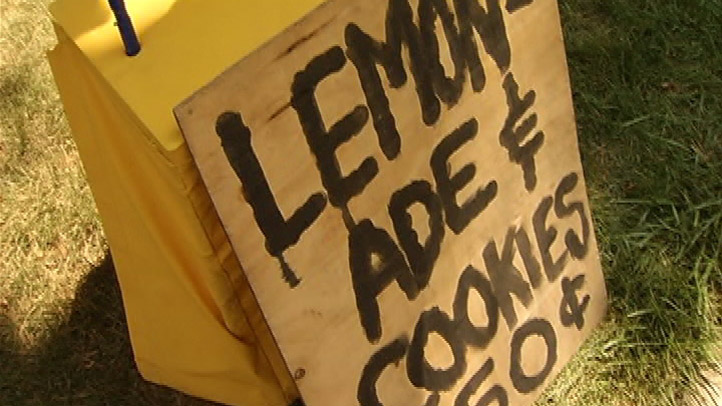 LEMON-
ADE &
COOKIES
50¢